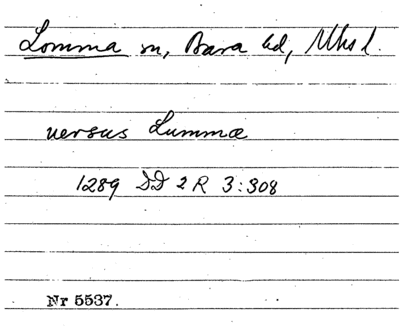 Lomma sn, Bara hd, Mhs l.
versus Lummæ
1289 DD 2 R 3:308
Nr 5537.